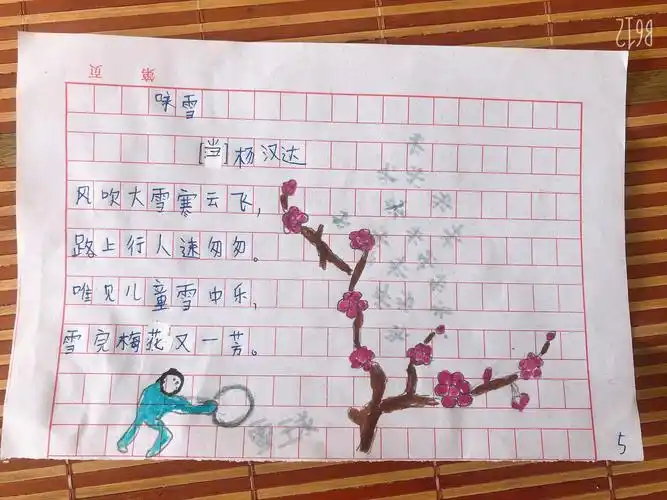 第 页
咏雪
[当]杨汉达
风吹大雪寒云飞，
路上行人速匆匆。
唯见儿童雪中乐，
雪完梅花又一芳。
5
B612